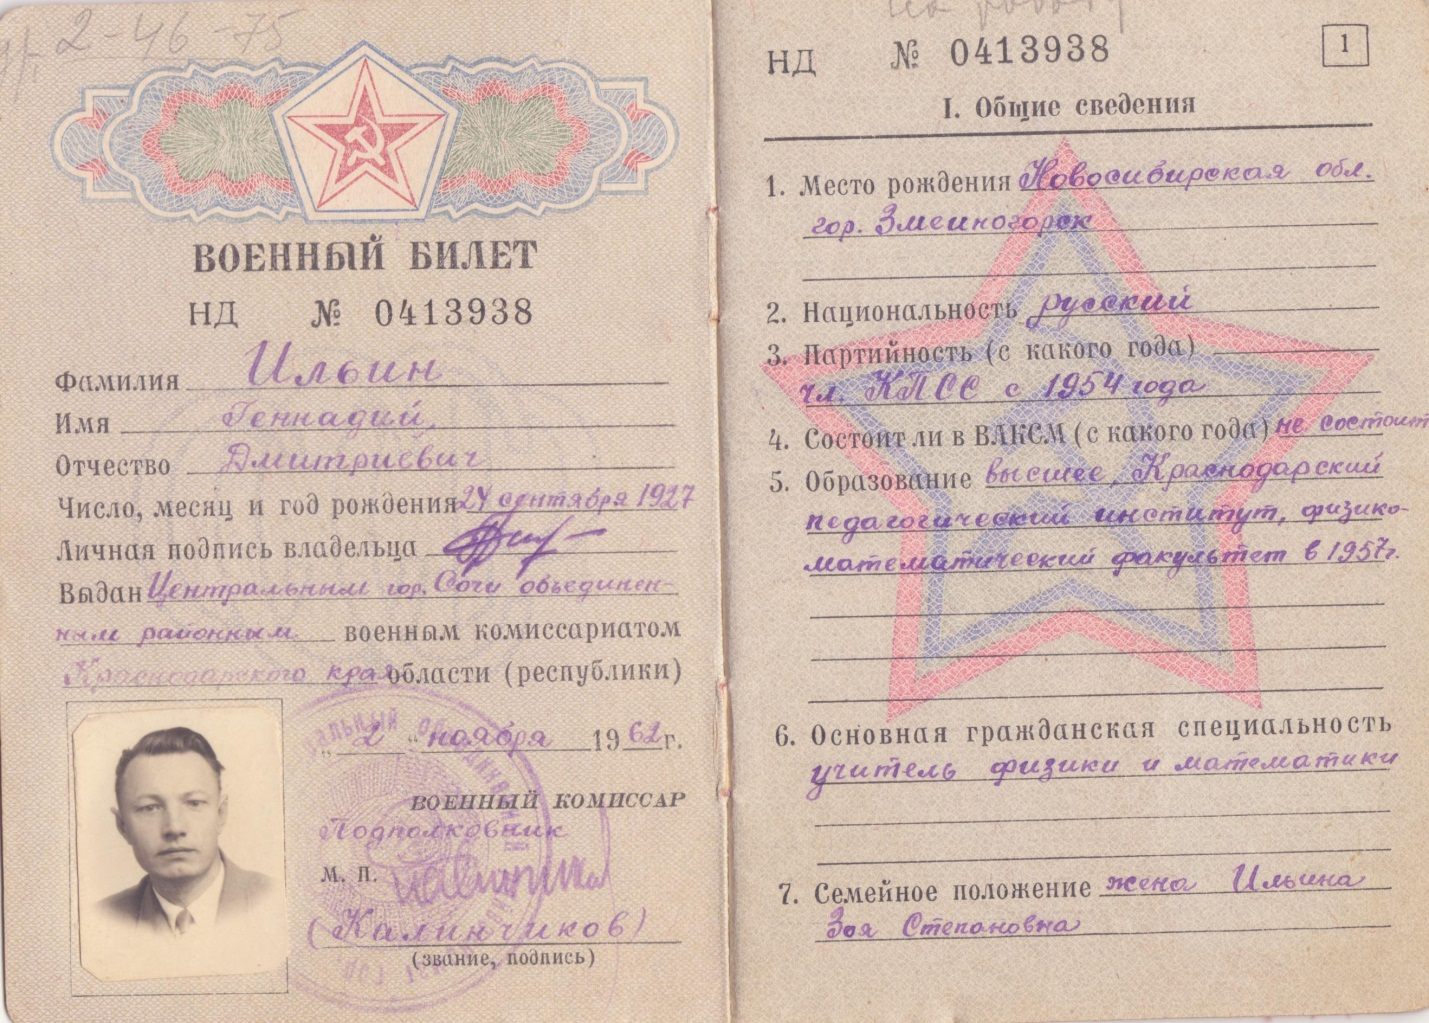 2-46-75
ВОЕННЫЙ БИЛЕТ
НД № 0413938
Фамилия Ильин
Имя Геннадий,
Отчество Дмитриевич
Число, месяц и год рождения 24 сентября 1927
Личная подпись владельца
Выдан Центральным гор. Сочи объединен-
ным районным военным комиссариатом
Краснодарского края области (республики)
„ 2 “ ноября 1962 г.
ВОЕННЫЙ КОМИССАР
Подполковник
М. П.
(Калинчиков)
(звание, подпись)
на работу
НД № 0413938
1
I. Общие сведения
1. Место рождения Новосибирская обл.
гор. Змеиногорск
2. Национальность русский
3. Партийность (с какого года)
чл. КПСС с 1954 года
4. Состоит ли в ВЛКСМ (с какого года) не состоит
5. Образование высшее, Краснодарский
педагогический институт, физико-
математический факультет в 1957г.
6. Основная гражданская специальность
учитель физики и математики
7. Семейное положение жена Ильина
Зоя Степановна